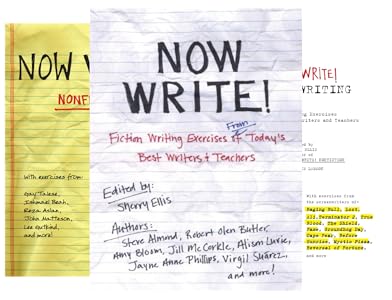 NOW W
NONF
With exercises from:
Gay Talese,
Ishmael Beah,
Reza Aslan,
John Matteson,
Lee Gutkind,
and more!
NOW
WRITE!
From
Fiction Writing Exercises of Today's
Best Writers & Teachers
Edited by:
Sherry Ellis
Authors:
Steve Almond, Robert Olen Butler,
Amy Bloom, Jill McCorkle, Alison Lurie,
Jayne Anne Phillips, Virgil Suárez,
and more!
WRITE!
WRITING
ng Exercises
riters and Teachers
With exercises from
the screenwriters of:
Raging Bull, Lost,
Terminator 2, True
Blood, The Shield,
Fame, Groundhog Day,
Cape Fear, Before
Sunrise, Mystic Pizza,
Reversal of Fortune
and more